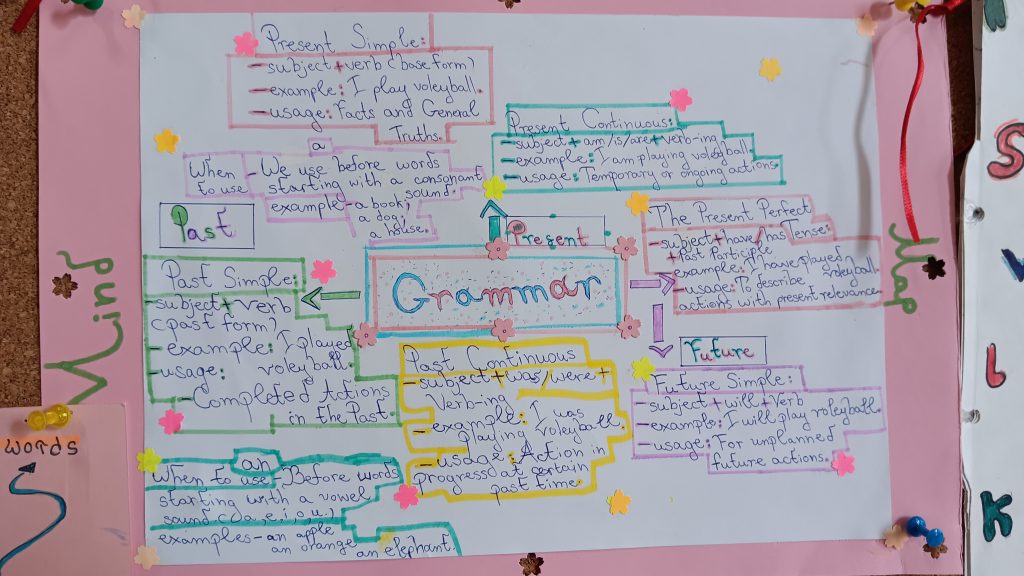 Present Simple:
- subject + verb (base form)
- example: I play voleyball.
- usage: Facts and General
Truths.
Present Continuous:
- subject + am/is/are + verb-ing
- example: I am playing voleyball
- usage: Temporary or ongoing actions.
a
When to use
- We use before words
starting with a consonant
sound.
example - a book;
a dog;
a house.
Past
Present
The Present Perfect
Tense:
- subject + have/has
+ Past Participle
example: I have played
voleyball.
- usage: To describe
actions with present relevance
Mind
Grammar
Map
Past Simple:
- subject + verb
(past form)
- example: I played
voleyball.
- usage:
- Completed Actions
in the Past.
Past Continuous
- subject + was/were +
Verb-ing
- example: I was
playing voleyball.
- usage: Action in
progress at certain
past time.
Future
Future Simple:
- subject + will + Verb
- example: I will play voleyball.
- usage: For unplanned
future actions.
words
an
When to use - Before words
starting with a vowel
sound (a, e, i, o, u.)
examples - an apple
an orange an elephant
S
L
K